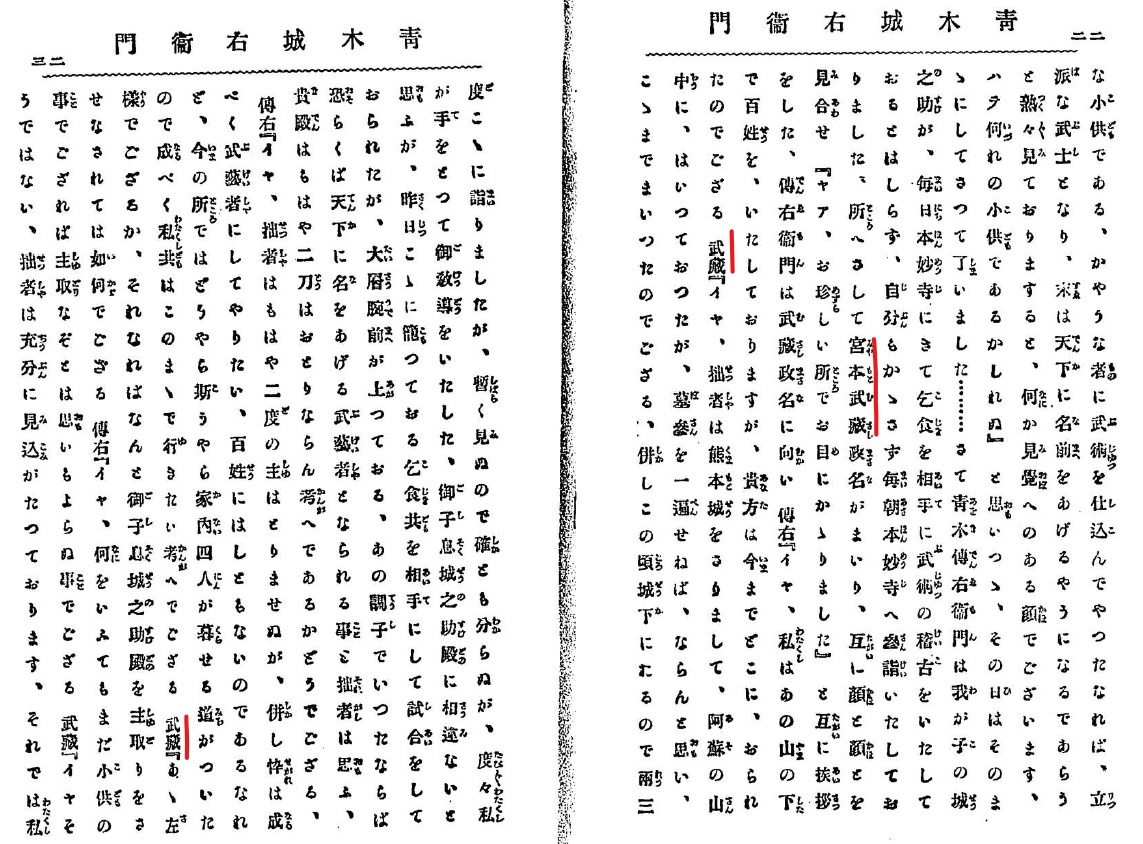 青木城右衞門
二二
な小供である、かやうな者に武術を仕込んでやつたなれば、立
派な武士となり、末は天下に名前をあげるやうになるであらう
と熟々見ておりまするど、何か見覺へのある顏でございます、
ハテ何れの小供であるかしれぬ』と思いつゝ、その日はそのま
ゝにしてさつて了いました…………さて靑木傳右衞門は我が子の城
之助が、每日本妙寺にきて乞食を相手に武術の稽古をいたして
おるとはしらず、自分もかゝさず每朝本妙寺へ參詣いたしてお
りました、所へさして宮本武藏政名がまいり、互に顏と顏とを
見合せ『ヤア、お珍しい所でお目にかゝりました』と互に挨拶
をした、傳右衞門は武藏政名に向い傳右『イヤ、私はあの山の下
で百姓を、いたしておりますが、貴方は今までどこに、おられ
たのでござる武藏『イヤ、拙者は熊本城をさりまして、阿蘇の山
中に、はいつておつたが、墓參を一遍せねば、ならんと思い、
こゝまでまいつたのでござる、併しこの頃城下にわたるので兩三
青木城右衞門
二三
度こゝに詣りましたが、暫く見ぬので確とも分らぬが、度々私
が手をとつて御敎導をいたした、御子息城之助殿に相違ないと
思ふが、昨日こゝに籠つておる乞食共を相手にして試合をして
おられたが、大層腕前が上つておる、あの調子でいつたならば
恐らくば天下に名をあげる武藝者となられる事と拙者は思ふ、
貴殿はもはや二刀はおとりならん考へであるかどうでござる、
傳右『イヤ、拙者はもはや二度の主はとりませぬが、併し忰は成
べく武藝者にしてやりたい、百姓にはしともないのであるなれ
ど、今の所ではどうやら斯うやら家內四人が暮せる道がついた
ので成べく私共はこのまゝで行きたい考へでござる武藏『あゝ左
樣でござるか、それなればなんと御子息城之助殿を主取りをさ
せなされては如何でござる傳右『イヤ、何をいふてもまだ小供の
事でござれば主取なぞとは思いもよらぬ事でござる武藏『イヤそ
うではない、拙者は充分に見込がたつております、それでは私